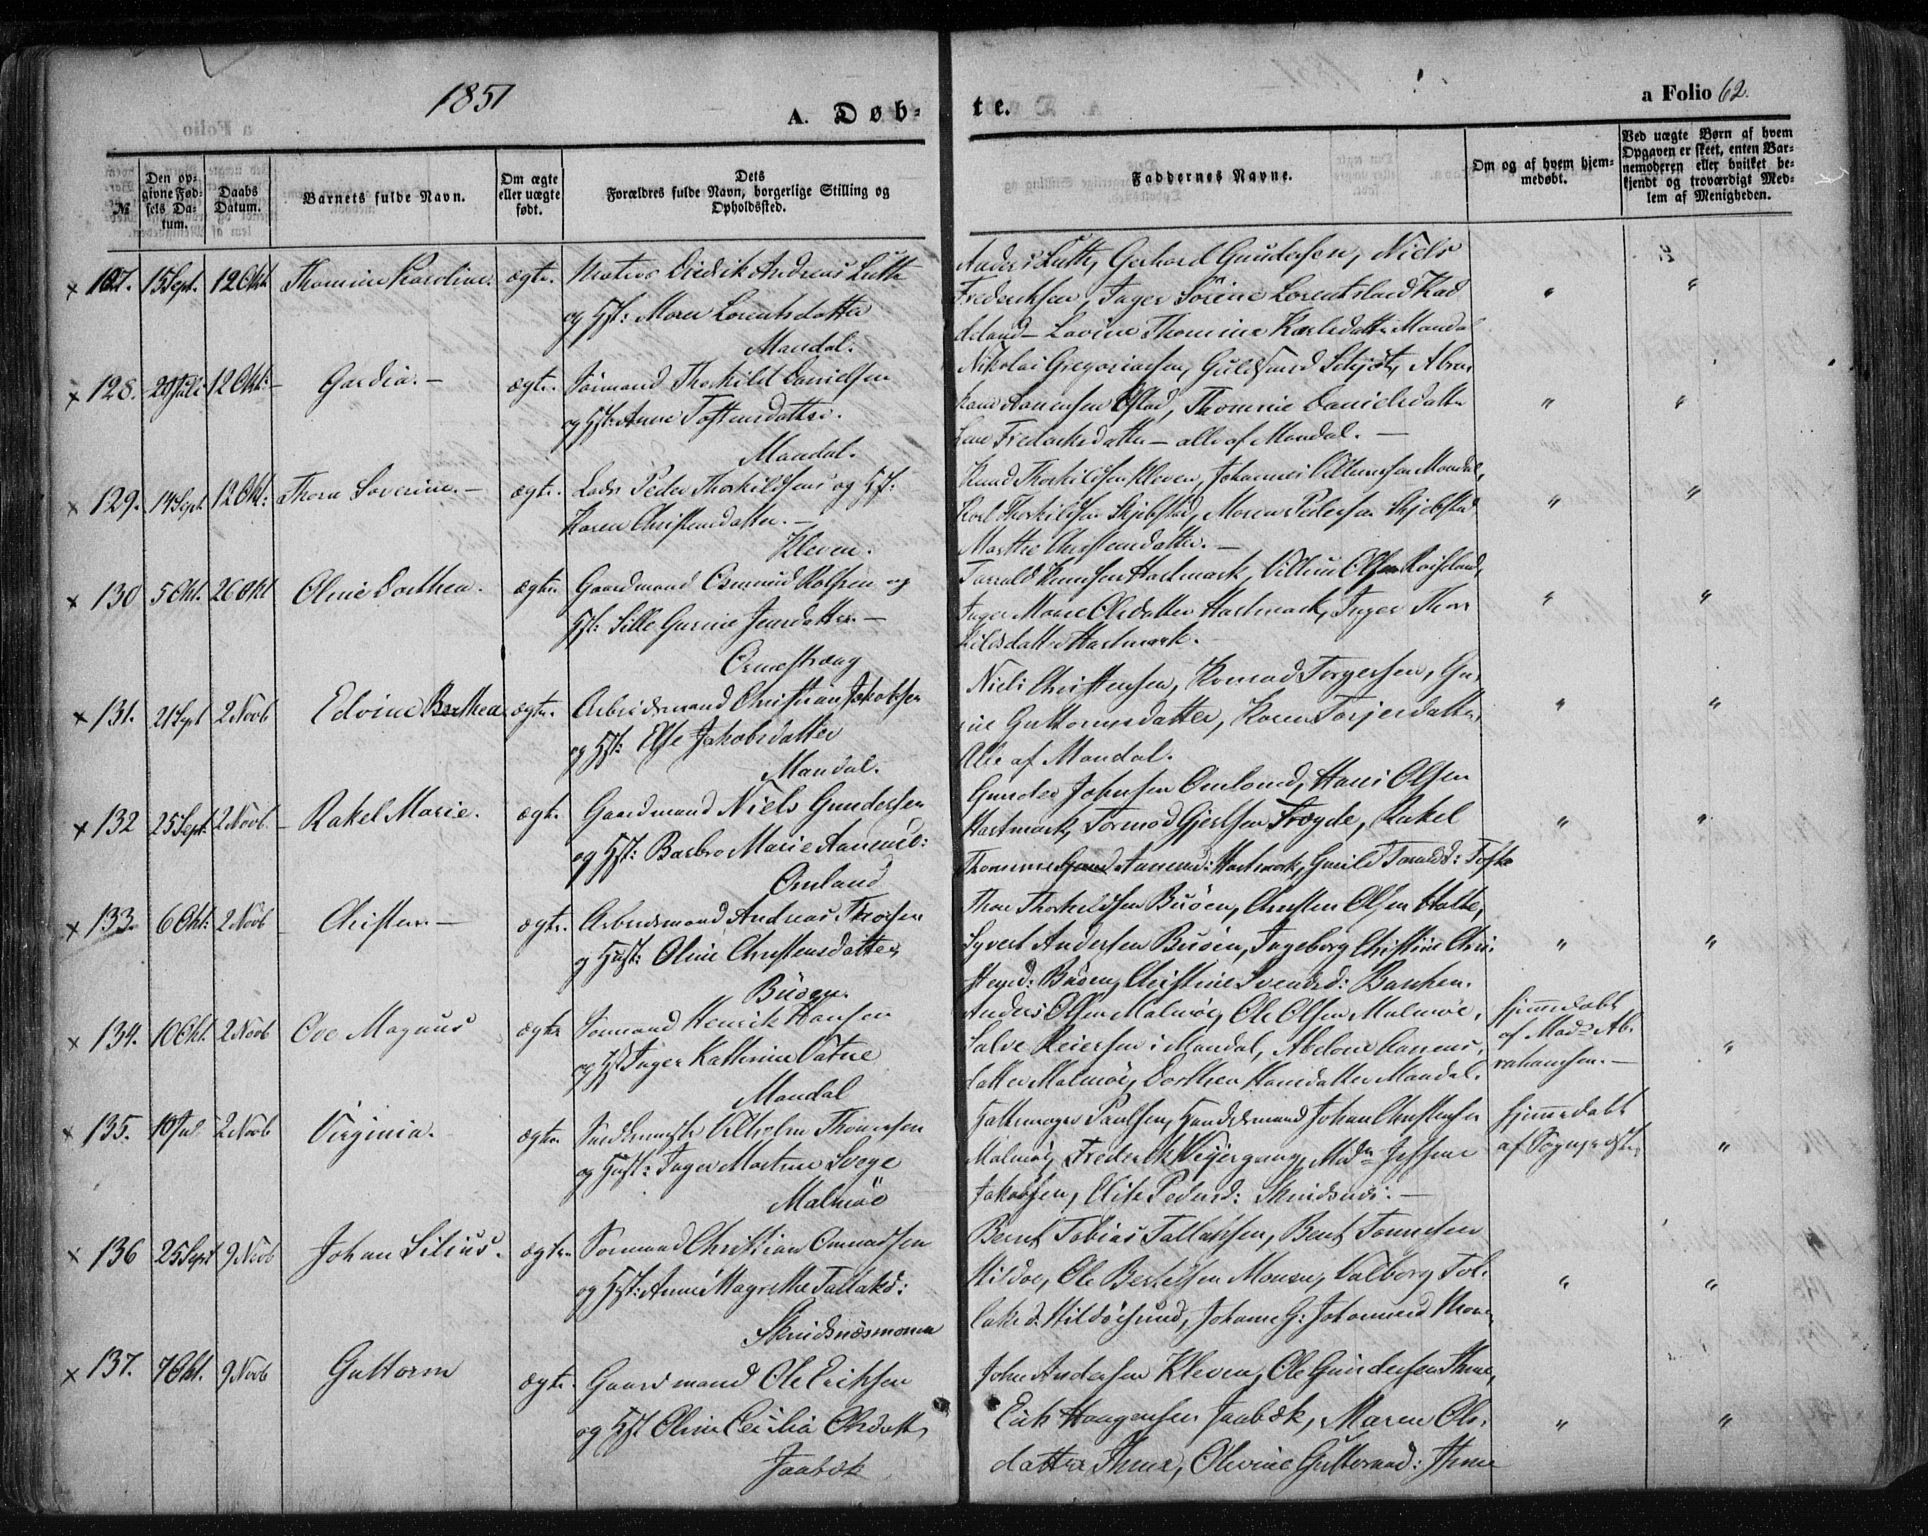 1851
A. Døb-
te.
a Folio 62.
№
Den opgivne Fødsels Datum.
Daabs Datum.
Barnets fulde Navn.
Om ægte eller uægte født.
Dets Forældres fulde Navn, borgerlige Stilling og Opholdssted.
Faddernes Navne.
Om og af hvem hjemmedøbt.
Ved uægte Børn af hvem Opgaven er skeet, enten Barnemoderen eller hvilket bekjendt og troværdigt Medlem af Menigheden.
x 127. 15 Sept. 12 Okt Thomine Karoline. ægte. Matros Didrik Andreas Lütk
og Hst: Maren Lorentsdatter
Mandal.
Anders Lütk, Gerhard Gundersen, Niels
Frederiksen, Inger Sörine
Lavine Thomine Karlsdatter Mandal
x 128. 12 Okt: Gardia. – ægte. Sömand Thorkild Danielsen
og Hst: Anne Tostensdatter.
Mandal.
Nikolai Gregoriussen, Guldsmed Schjöt, Abra
Thomine Danielsdatter
Fredriksdatter – alle af Mandal. –
x 129. 14 Sept 12 Okt: Thora Soverine. – ægte. Lods Peder Thorkildsen og Hst:
Karen Christensdatter. –
Kleven.
Knud Thorkildsen Kleven, Johannes Villumsen Mandal,
Karl Thorkildsen Skjebstad, Maren Pedersen Skjebstad
Marthe Christensdatter. –
x 130 5 Okt. 26 Okt Oline Dorthea. ægte. Gaardmand Osmund Rolfsen og
Hst: Sille Gurine Jensdatter –
Ormestrang
Tarrald Hartmark, Villum Olsen Roiseland,
Inger Marie Olsdatter Hartmark, Inger Thor
kildsdatter Hartmark.
x 131. 21 Sept 2 Novb Edvine Berthea ægte. Arbeidsmand Christian Jakobsen
og Hst: Else Jakobsdatter
Mandal.
Niels Christensen, Konrad Torgersen, Gu
rie Guttormsdatter, Karen Torjersdatter,
Alle af Mandal.
x 132 25 Sept. 2 Novb. – Rakel Marie. ægte. Gaardmand Niels Gundersen
og Hst: Barbro Marie Aanensd:
Omland
Gunder Johnsen Omland, Hans Olsen
Hartmark, Tormod Gjertsen Frøyde, Rakel
Thomine Aanensd: Hartmark, Gunild Taraldsd: Tofte
x 133. 6 Okt: 2 Novb Christen. – ægte. Arbeidsmand Andreas Thorsen
og Hust: Oline Christensdatter,
Büöen.
Thore Thorkildsen Buöen, Christen Olsen Halle,
Syvert Andersen Buöen, Ingeborg Christine Chri
stensd: Buöen, Christine Svendsd: Banken.
x 134. 10 Okt. 2 Novb Ove Magnus ægte Sömand Henrik Hansen
og Hst Inger Kathrine Vatne
Mandal
Anders Olsen Malmöe, Ole Olsen Malmöe,
Salve Reiersen i Mandal, Abelone Aanens
datter Malmöe, Dorthea Hansdatter Mandal.
hjemmedøbt
af Mads Ab.
rahamsen. –
x 135. 10 Jul 2 Novb Virginia. ægte. Vilhelm Thomesen
og Hust: Inger Martine Svege
Malmöe
Hattemager Paulsen, Johan Christensen
Malmöe, Frederik Weyergang, Mdm Jessine
Jakobsen, Elise Pedersd: Skridsnæs. –
hjemmedøbt
af Sognepræsten,
x 136 25 Sept 9 Novb Johan Silius. ægte. Sömand Christian Omundsen
og Hst: Anne Magrethe Tallaksd:
Skridsnæsmonen
Bernt Tobias Tallaksen, Bent Tönnesen
Hildöe, Ole Bertelsen Monen, Valborg Tal
laksd. Hildöesund, Johanne G: Johannesd Monen,
x 137. 7 Okt. 9 Novb Guttorm ægte. Gaardmand Ole Eriksen
og Hst Oline Cecilia Olsdatt,
Jaabæk
John Andersen Kleven, Ole Gundersen Thme,
Erik Haagensen Jaabæk, Maren Ols
datter Thme, Olevine Guttormsd: Thme